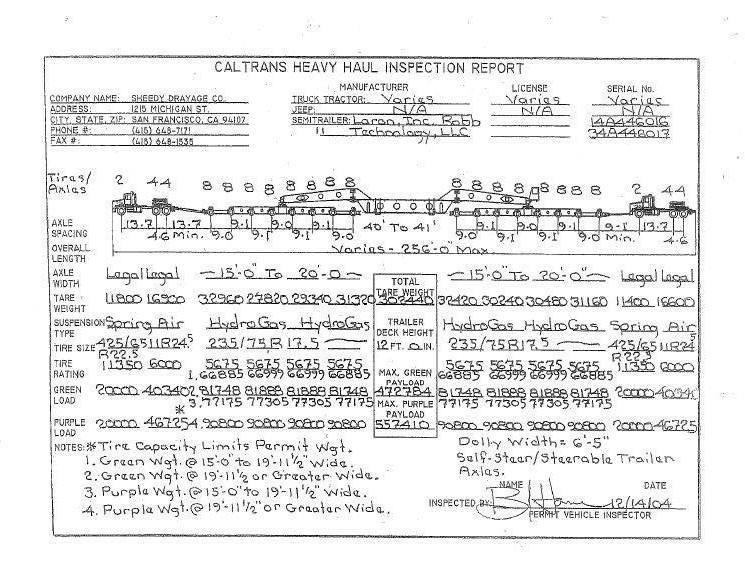 CALTRANS HEAVY HAUL INSPECTION REPORT
MANUFACTURER LICENSE SERIAL No.
COMPANY NAME: SHEEDY DRAYAGE CO. TRUCK TRACTOR: Varies Varies Varies
ADDRESS: 1215 MICHIGAN ST. JEEP: N/A N/A N/A
CITY, STATE, ZIP: SAN FRANCISCO, CA 94107 SEMITRAILER: Laron, Inc. Bobb 14A446016
PHONE #: (415) 648-7171 " Technology, LLC 34A448017
FAX #: (415) 648-1535
Tires/ Axles 2 4 4 8 8 8 8 8 8 8 8 8 8 8 8 8 8 2 4 4
AXLE SPACING 13.7 13.7 9.1 9.1 40' To 41' 9.1 9.1 9-1 13.7
4.6 Min. 9.0 9.1 9.0 9.0 9.1 9.0 Min. 4.6
OVERALL LENGTH Varies - 256'-0" Max
AXLE WIDTH Legal Legal 15'-0" To 20'-0 TOTAL 15'-0" To 20'-0" Legal Legal
TARE WEIGHT 11800 16900 32960 27820 29340 31320 TARE WEIGHT 302440 32420 30240 30480 31160 11400 16600
SUSPENSION TYPE Spring Air HydroGas HydroGas TRAILER DECK HEIGHT HydroGas HydroGas Spring Air
TIRE SIZE 425/65 R22.5 11R24.5 235/75R17.5 12 FT. 0 IN. 235/75R17.5 425/65 R22.5 11R24.5
TIRE RATING 11350 6000 5675 5675 5675 5675 5675 5675 5675 5675 11350 6000
1. 66885 66999 66999 66885 MAX. GREEN PAYLOAD 66885 66999 66999 66885
GREEN LOAD 20000 40340 2. 81748 81888 81888 81748 472784 81748 81888 81888 81748 20000
* 3. 77175 77305 77305 77175 MAX. PURPLE PAYLOAD 77175 77305 77305 77175
PURPLE LOAD 20000 46725 4. 90800 90800 90800 90800 557410 90800 90800 90800 90800 20000 46725
NOTES: *Tire Capacity Limits Permit Wgt.
1. Green Wgt. @ 15'-0" to 19'-11 1/2" Wide.
2. Green Wgt. @ 19'-11 1/2 or Greater Wide.
3. Purple Wgt. @ 15'-0" to 19'-11 1/2" Wide.
4. Purple Wgt. @ 19'-11 1/2" or Greater Wide.
Dolly Width = 6'-5"
Self-Steer/Steerable Trailer
Axles.
NAME DATE
INSPECTED BY: 12/14/04
PERMIT VEHICLE INSPECTOR